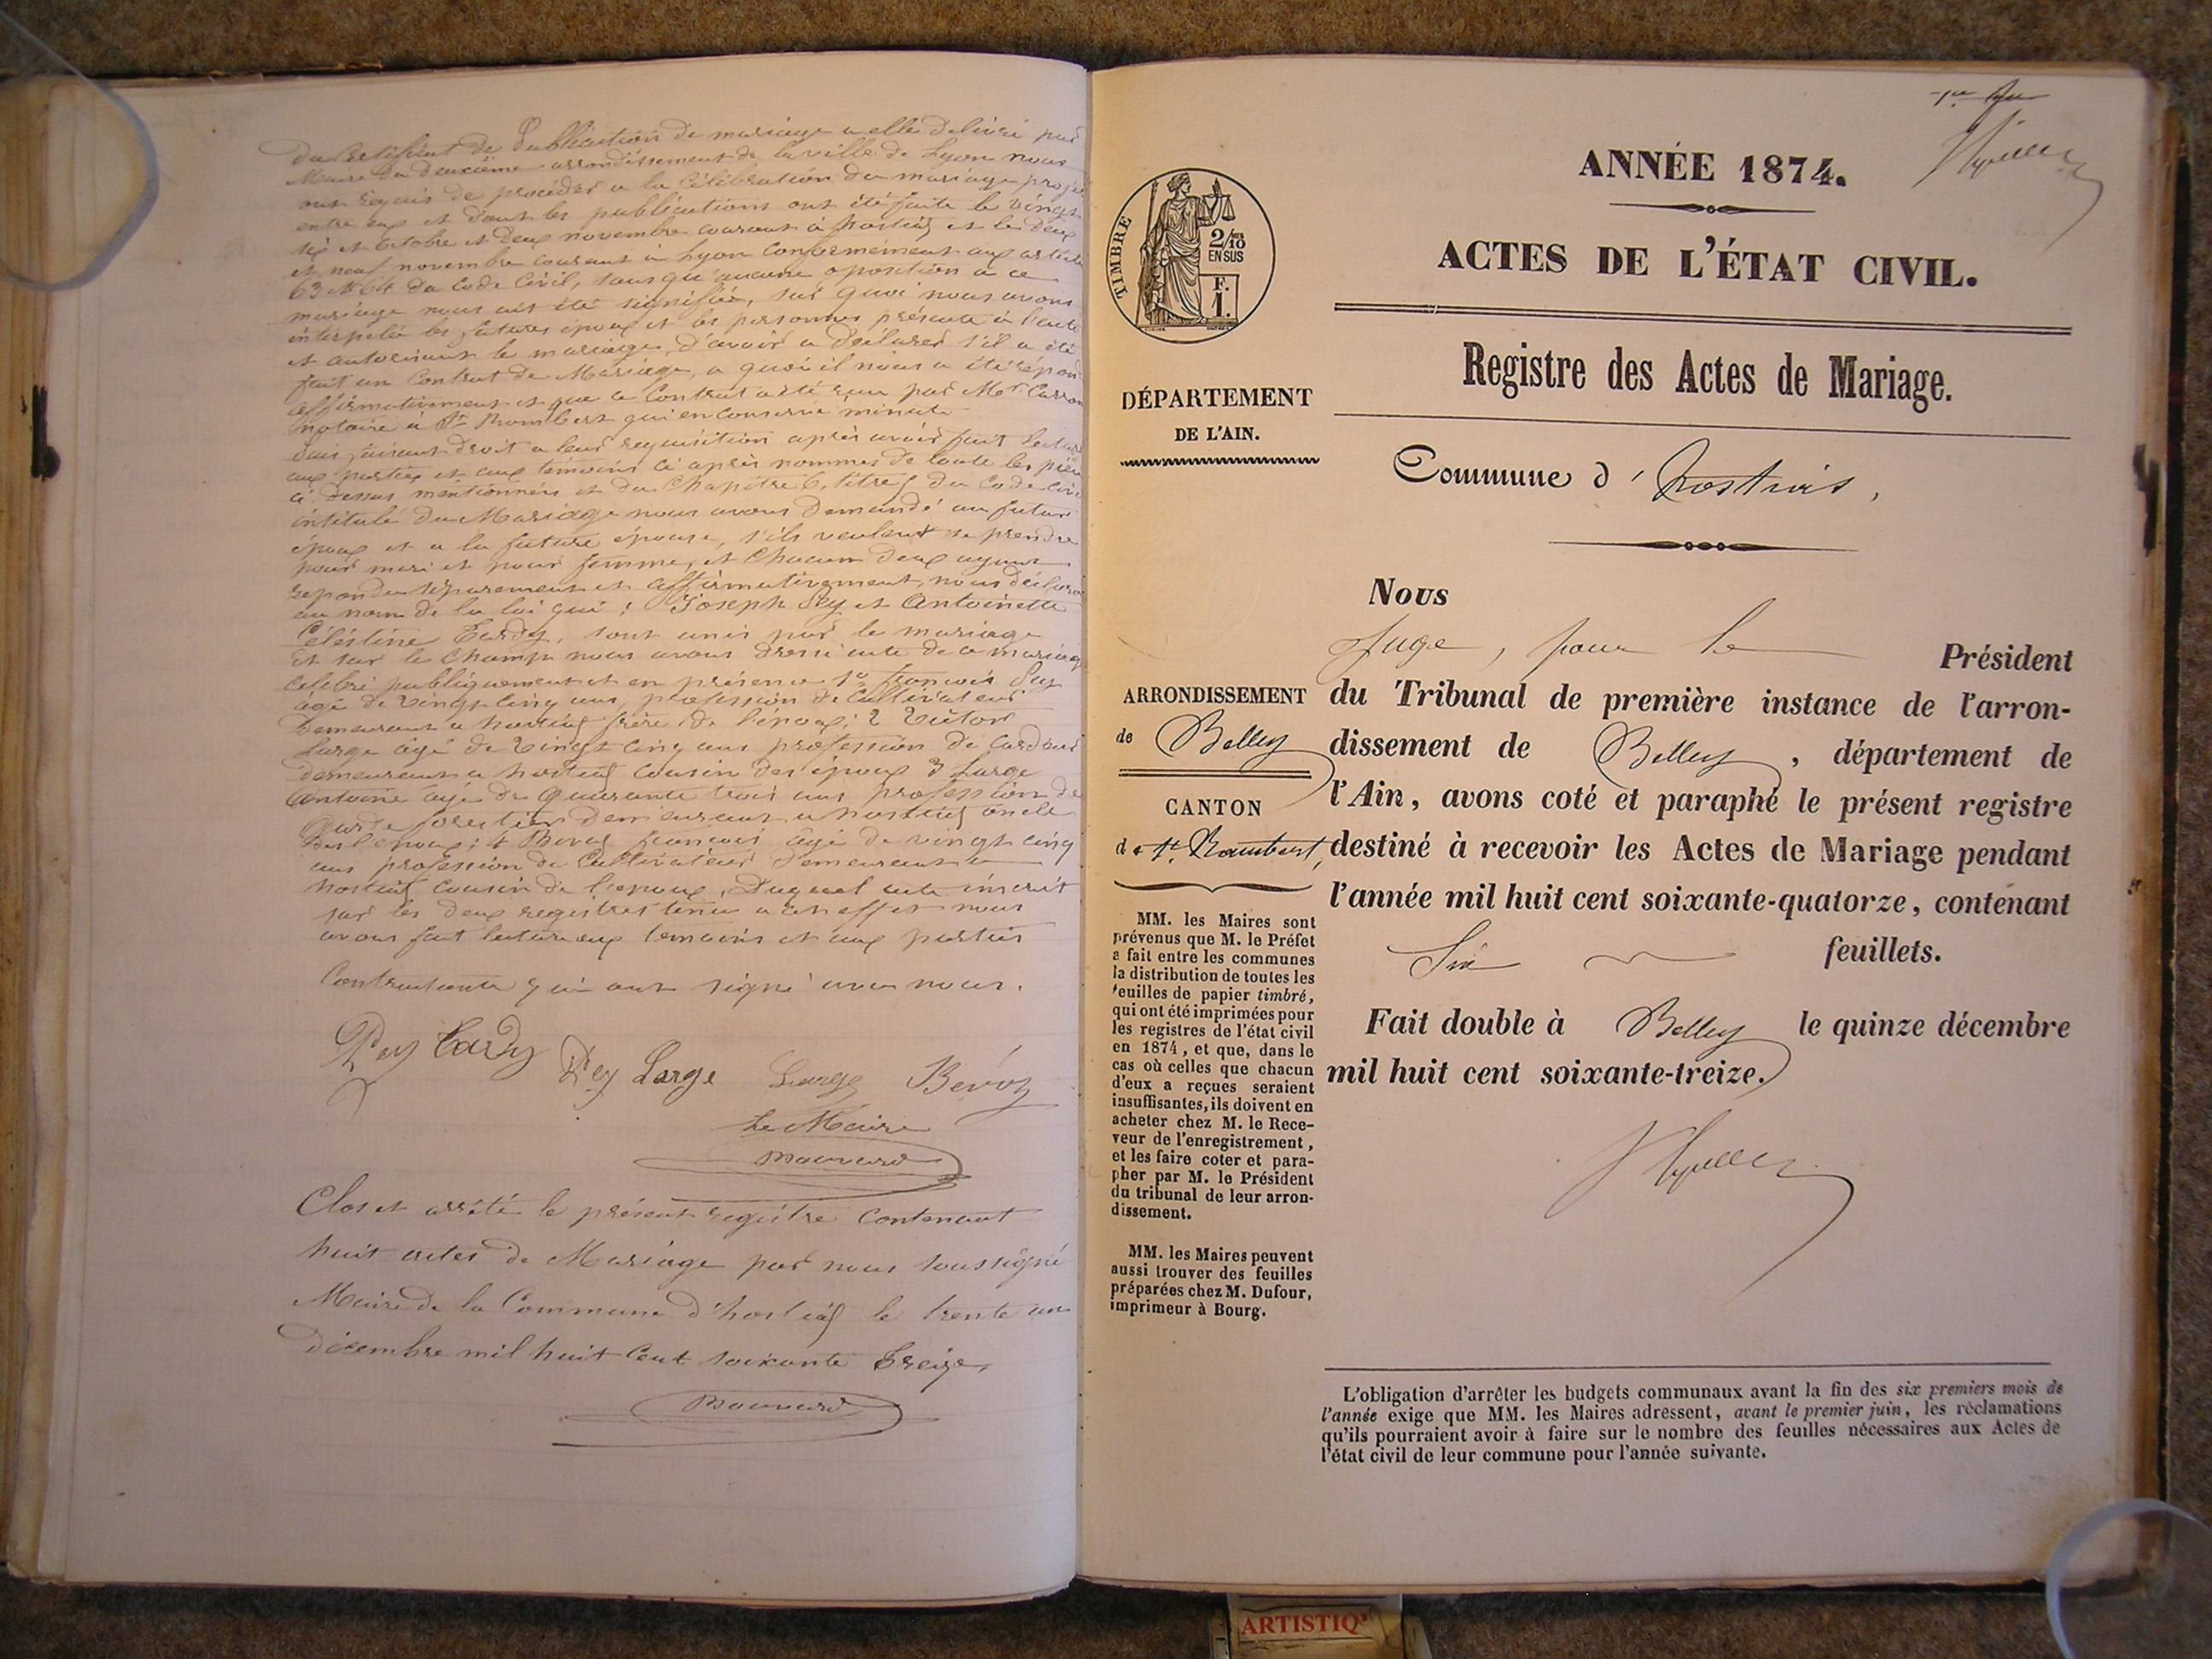 Du Certificat de Publication de mariage a elle délivré par
Maire du deuxième arrondissement de la ville de Lyon nous
ont requis de procéder a la Célébration du mariage projeté
entre eux et dont les publications ont été faite le vingt
six et Octobre et deux novembre courant à hostiaz et les deux
et neuf novembre courant à Lyon conformément aux article
63 et 64 du Code Civil, sans qu'aucune oposition a ce
mariage nous ait été signifiée, sur quoi nous avons
interpelé les futures époux et les personnes présente à l'acte
et autorisant le mariage, d'avoir a déclarer s'il a été
fait un Contrat de Mariage, a quoi il nous a été répon
affirmativement et que ce Contrat a été reçu par Me
notaire a St Rambert qui en conserve minute
dus faisant droit a leur requisition après avoir fait lecture
aux parties et aux témoins ci après nommés de toute les pièce
ci dessus mentionnées et du Chapitre 6, titre 5 du Code Civi
intitulé du Mariage nous avons demandé au futur
époux et a la future épouse, s'ils veulent se prendre
pour mari et pour femme, et Chacun deux ayant
repondu séparement et affirmativement, nous déclaron
au nom de la loi que : Joseph Pey et Antoinette
Célestine Tardy, sont unis par le mariage
Et sur le Champ nous avons dressé acte de ce mariage
célébré publiquement et en présence 1° françois Pey
âgé de vingt cinq ans, profession de Cultivateur
Demeurant a hostiaz frère de l'époux; 2 Victor
Large âgé de vingt cinq ans profession de
demeurant a hostiaz cousin des époux 3 Large
Antoine âgé de quarante trois ans profession de
Garde forestier demeurant a hostiaz oncle
de l'époux; 4 Bévoz françois âgé de vingt cinq
ans profession de Cultivateur demeurant a
hostiaz cousin de l'époux, Duquel acte inscrit
sur les deux registres tenu a cet effet nous
avons fait lecture aux temoins et aux parties
Contractante qui ont signé avec nous.
Pey Tardy Pey Large Large Bévoz
Le Maire
Clos et arrêté le présent registre Contenant
huit actes de Mariage par nous soussigné
Maire de la Commune d'hostiaz le trente un
Décembre mil huit Cent soixante treize,
ANNÉE 1874.
ACTES DE L'ÉTAT CIVIL.
Registre des Actes de Mariage.
Commune d' Hostias,
TIMBRE
2/10
EN SUS
F.
1.
DÉPARTEMENT
DE L'AIN.
ARRONDISSEMENT
de Belley
CANTON
de St. Rambert,
MM. les Maires sont
prévenus que M. le Préfet
a fait entre les communes
la distribution de toutes les
feuilles de papier timbré,
qui ont été imprimées pour
les registres de l'état civil
en 1874, et que, dans le
cas où celles que chacun
d'eux a reçues seraient
insuffisantes, ils doivent en
acheter chez M. le Rece-
veur de l'enregistrement,
et les faire coter et para-
pher par M. le Président
du tribunal de leur arron-
dissement.
MM. les Maires peuvent
aussi trouver des feuilles
préparées chez M. Dufour,
imprimeur à Bourg.
Nous
Juge, pour le Président
du Tribunal de première instance de l'arron-
dissement de Belley, département de
l'Ain, avons coté et paraphé le présent registre
destiné à recevoir les Actes de Mariage pendant
l'année mil huit cent soixante-quatorze, contenant
Six feuillets.
Fait double à Belley le quinze décembre
mil huit cent soixante-treize.
L'obligation d'arrêter les budgets communaux avant la fin des six premiers mois de
l'année exige que MM. les Maires adressent, avant le premier juin, les réclamations
qu'ils pourraient avoir à faire sur le nombre des feuilles nécessaires aux Actes de
l'état civil de leur commune pour l'année suivante.
ARTISTIQ